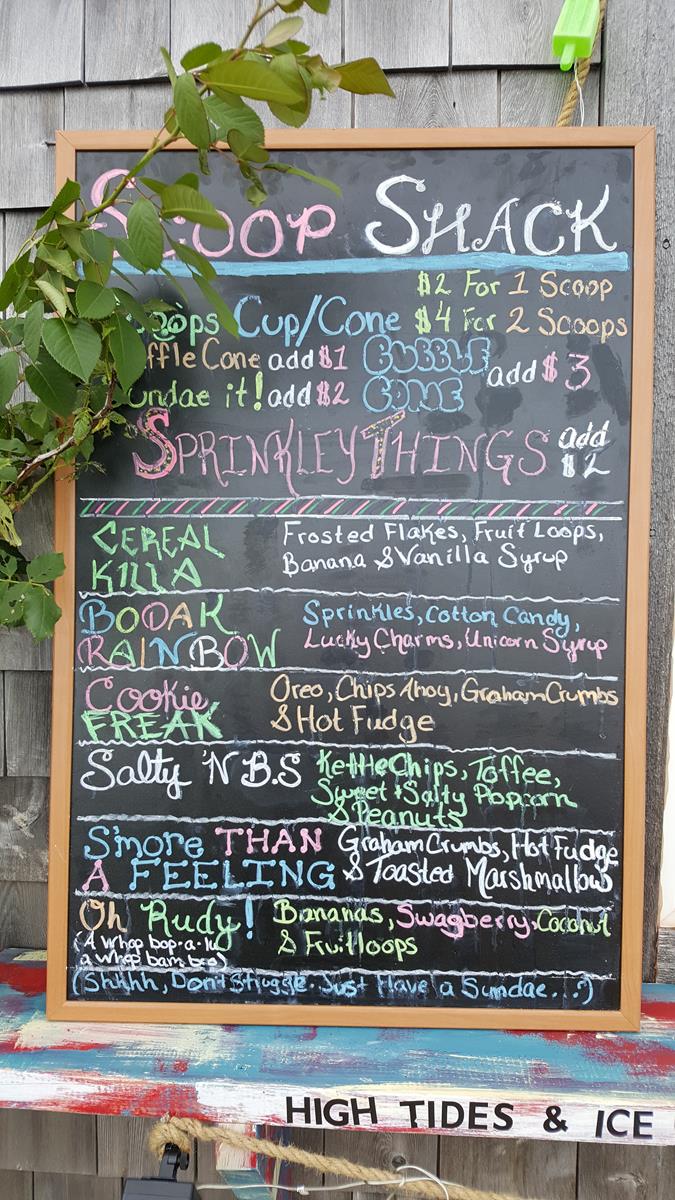 Scoop SHACK
$2 For 1 Scoop
Cup/Cone $4 For 2 Scoops
Cone add $1 BUBBLE CONE add $3
it! add $2
SPRINKLEYTHINGS add $2
CEREAL KILLA Frosted Flakes, Fruit Loops,
Banana & Vanilla Syrup
BODAK RAINBOW Sprinkles, Cotton Candy,
Lucky Charms, Unicorn Syrup
Cookie FREAK Oreo, Chips Ahoy, Graham Crumbs
& Hot Fudge
Salty 'N B.S Kettle Chips, Toffee,
Sweet + Salty Popcorn
& Peanuts
S'more THAN Graham Crumbs, Hot Fudge
A FEELING & Toasted Marshmallow
Oh Rudy! Bananas, Swagberry, Coconut
& Fruitloops
(A whop bop·a·lu
a whop bam boo)
(Shhhh, Don't Struggle. Just Have a Sundae...:)
HIGH TIDES & ICE